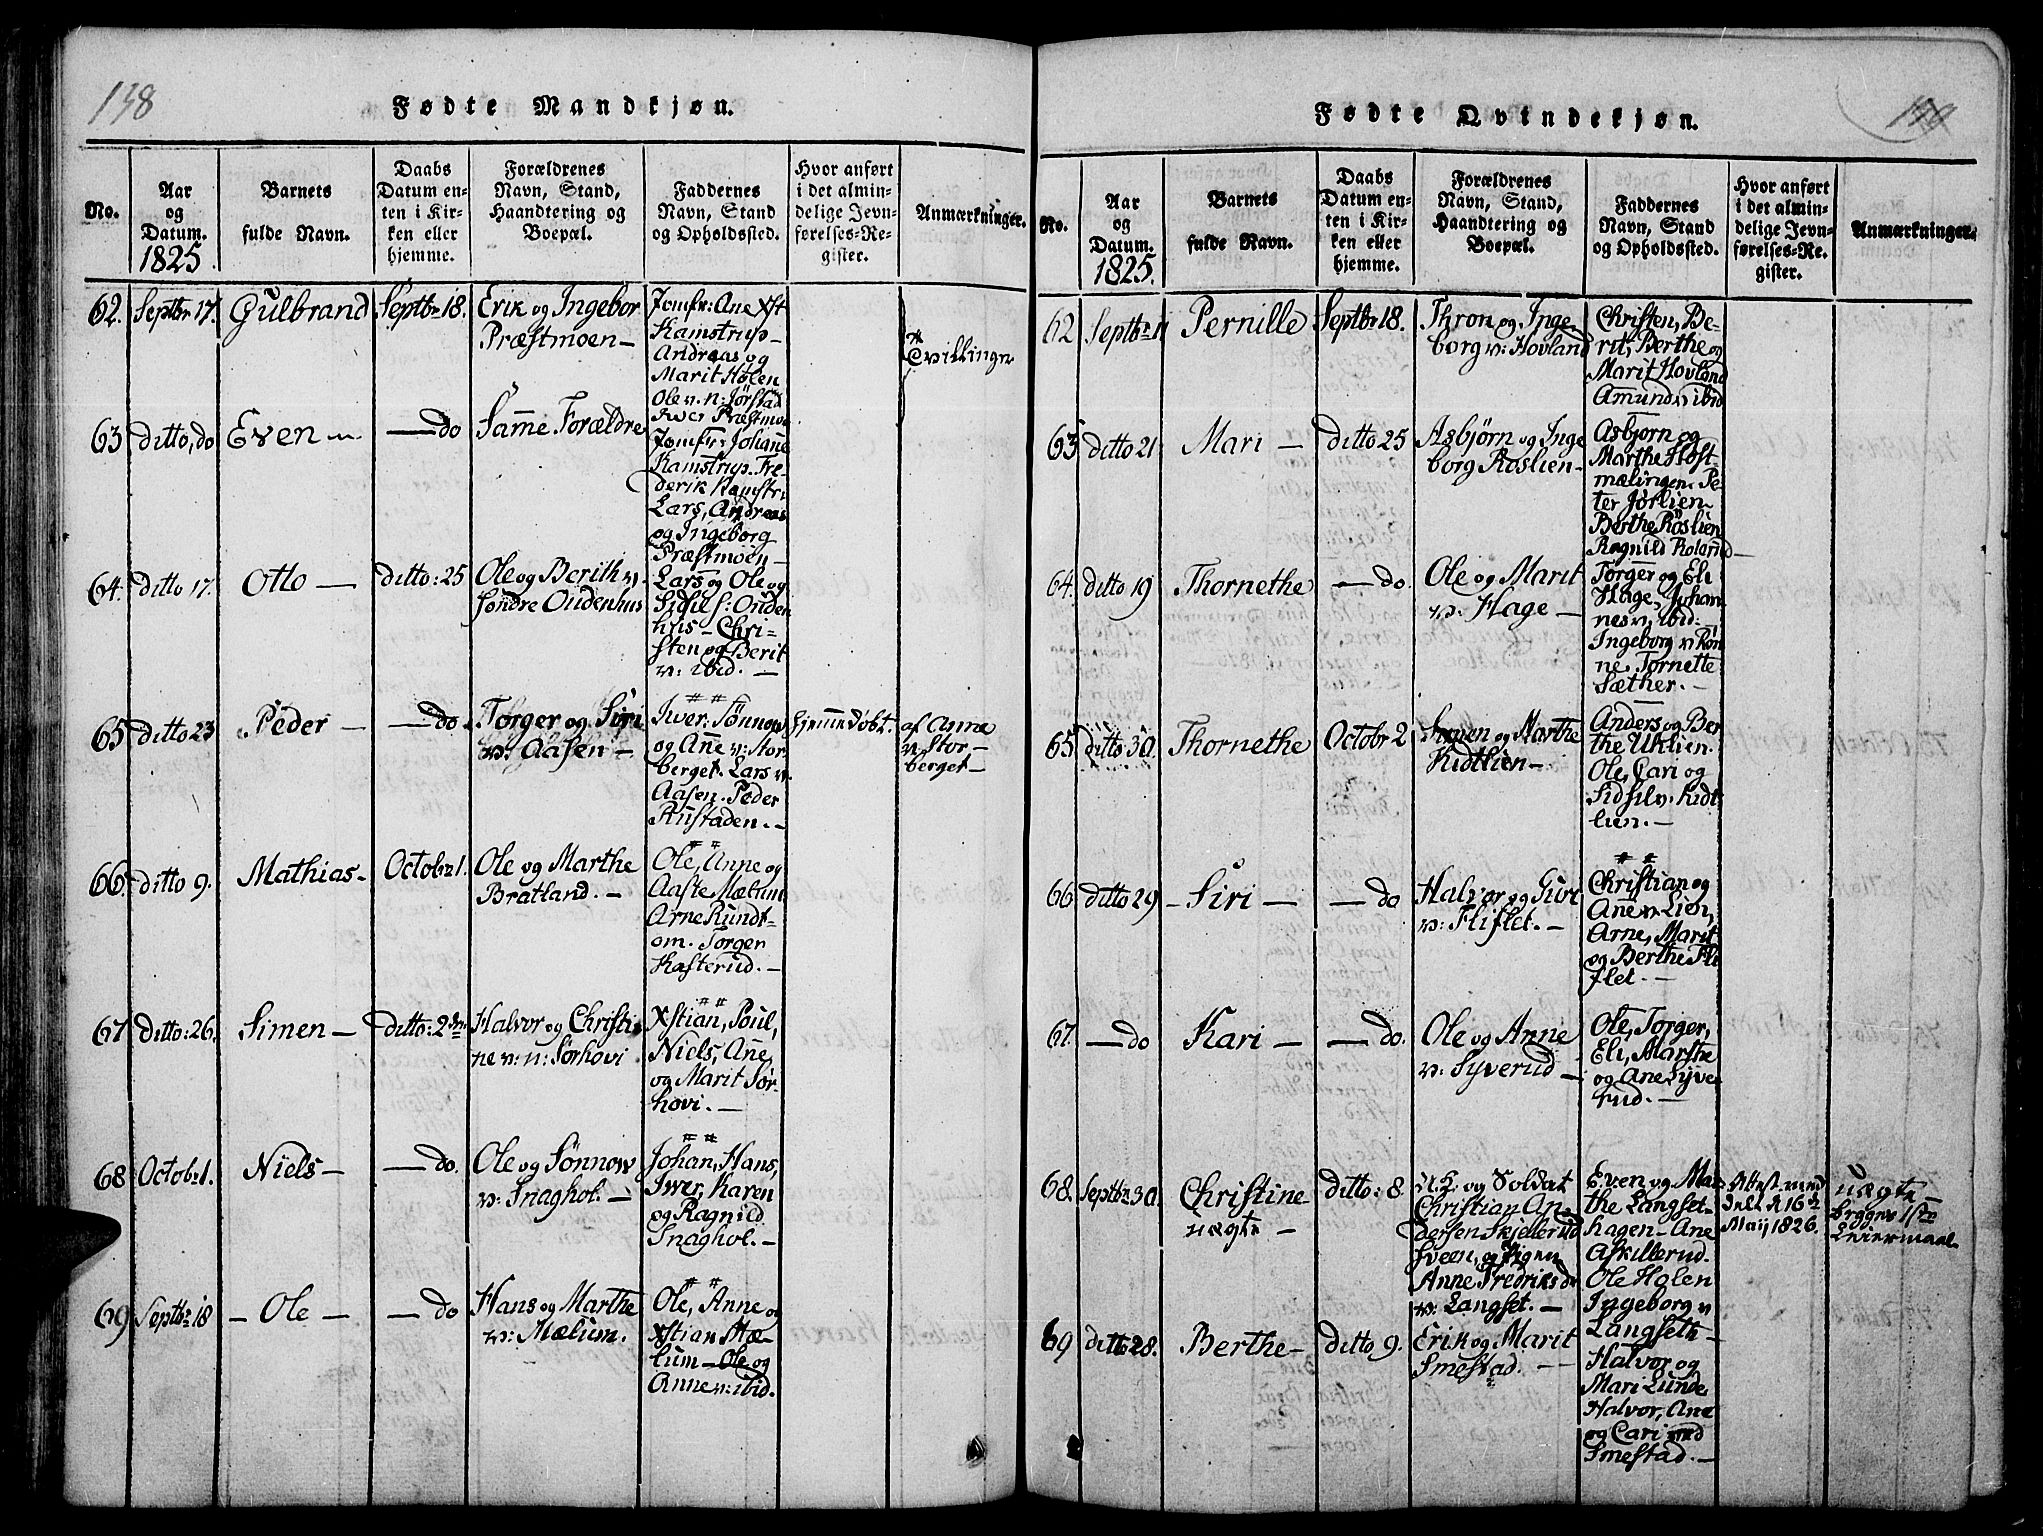 138
Fødte Mandkjøn.
No.
Aar
og
Datum.
1825.
Barnets
fulde Navn.
Daabs
Datum en-
ten i Kir-
ken eller
hjemme.
Forældrenes
Navn, Stand,
Haandtering og
Boepæl.
Faddernes
Navn, Stand
og Opholdssted.
Hvor anført
i det almin-
delige Jevn-
førelses-Re-
gister.
Anmærkninger.
62.
Septbr 17.
Gulbrand
Septbr 18.
Erik og Ingebor
Præstmoen –
Jomfr: Ane Xst
Kamstrup –
Andreas og
Marit Holen
Ole v. n: Jørstad
Iwer Præstmo
Tvillinger
63
ditto, do
Even
— do
Samme Forældre
Jomfr: Johane
Kamstrup. Fre-
derik Kamstru
Lars, Andreas
og Ingeborg
Præstmoen –
64.
ditto 17.
Otto —
ditto: 25
Ole og Berith v.
søndre Oudenhus
Lars og Ole og
Sidsil s: Ouden
huus – Chri-
sten og Berit
v: ibid. —
65
ditto 23
Peder –
— do.
Torger og Siri
v: Aasen –
Iwer. Sønnow
og Ane v: Stor
berget. Lars v.
Aasen. Peder
Rustaden. –
hjemmedøbt.
af Anne
v. Stor –
berget –
66.
ditto 9.
Mathias –
Octobr 1.
Ole og Marthe
Bratland. –
Ole, Anne og
Aaste Mælum
Arne Rundt-
om. Torger
Kasterud. –
67
ditto: 26.
Simen –
ditto: 2den
Halvor og Christi
ne v: n: Sørhovi
Xstian, Poul,
Niels, Ane,
og Marit Sør
hovi. —
68
Octobr 1.
Niels –
— do.
Ole og Sønnow
v: Snaghol. –
Johan, Hans,
Iwer, Karen
og Ragnild
Snaghol. –
69
Septbr 18
– Ole –
— do
Hans og Marthe
v: Mælum.
Ole, Anne og
Xstian Mæ-
lum – Ole og
Anne v: ibid.
Fødte Qvindekjøn.
No.
Aar
og
Datum.
1825.
Barnets
fulde Navn.
Daabs
Datum en-
ten i Kir-
ken eller
hjemme.
Forældrenes
Navn, Stand,
Haandtering og
Boepæl.
Faddernes
Navn, Stand
og Opholdssted.
Hvor anført
i det almin-
delige Jevn-
førelses-Re-
gister.
Anmærkninger.
62
Septbr 11
Pernille
Septbr 18.
Thron og Inge
borg v: Hovland
Christen, Be-
rit, Berthe og
Marit Hovland
Amund v: ibid
63
ditto 21
Mari –
ditto 25
Asbjørn og Inge
borg Roslien –
Asbjørn og
Marthe Høst-
mælingen. Pe
ter Jørlien
Berthe Roslien
Ragnild Roland –
64.
ditto 19
Thornethe
— do.
Ole og Marit
v: Hage –
Torger og Eli
Hage, Johan
nes v: ibid: –
Ingeborg v Røn
ne, Tornette
Sæther. –
65
ditto 30.
Thornethe
Octobr 2
Simen og Marthe
Kidtlien –
Anders og Ber
the Uklien.
Ole, Cari og
Sidsil v: Kidt
lien. –
66
ditto 29
– Siri –
— do
Halvor og Guri
v: Fliflet. –
Christian og
Ane v: Lien,
Arne, Marit
og Berthe Fli
flet. –
67
— do
Kari –
— do.
Ole og Anne
v: Syverud –
Ole, Torger,
Eli, Marthe
og Ane Syve
rud. —
68.
Septbr 30.
Christine
uægte –
ditto: 8.
U. K. og Soldat
Christian An
dersen Skjellerud
Sveen, og Pigen
Anne Fredriksdr
v: Langset. –
Even og Mar
the Langset-
hagen – Ane
Askillerud.
Ole Holen
Ingeborg v
Langseth –
Maij 1826.
uægte –
begges 1ste
Leiermaal.
69
ditto 28.
Berthe –
ditto 9.
Erik og Marit
Smestad. –
Halvor og
Mari Lunde,
Halvor, Ane
og Cari
Smestad. –